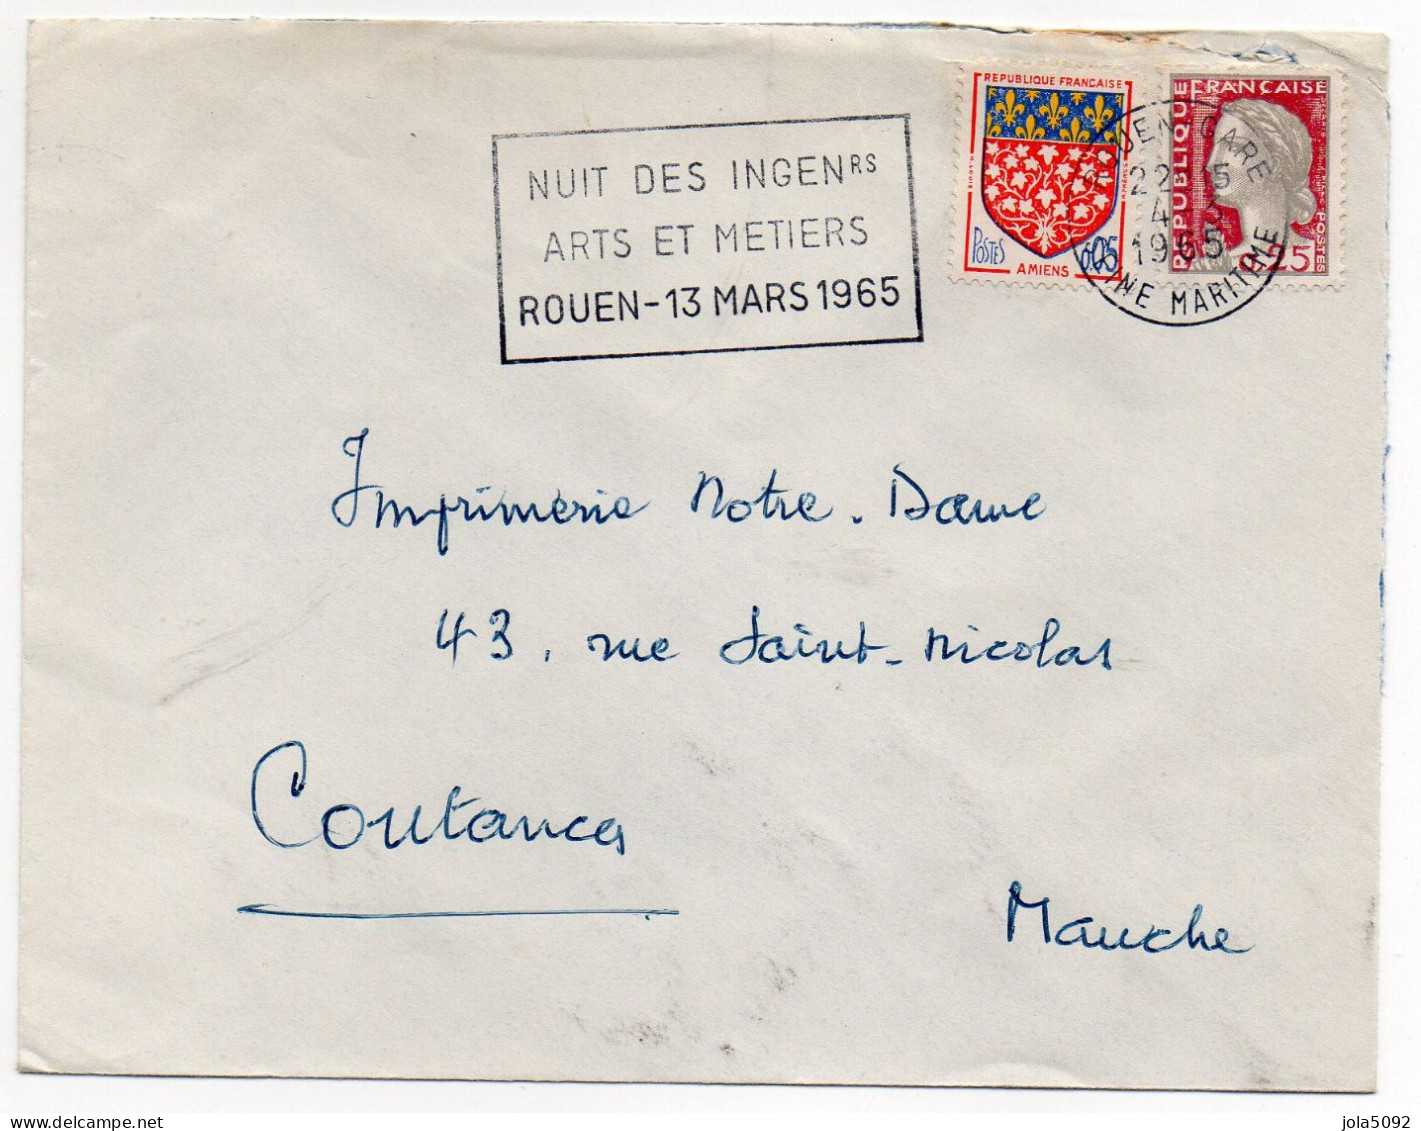 NUIT DES INGENRS
ARTS ET METIERS
ROUEN-13 MARS 1965
REPUBLIQUE FRANÇAISE
POSTES
0,05
AMIENS
REPUBLIQUE
FRANÇAISE
POSTES
0,25
ROUEN GARE
1965
MARITIME
Imprimerie Notre-Dame
43, rue Saint-Nicolas
Coutances
Manche
jola5092